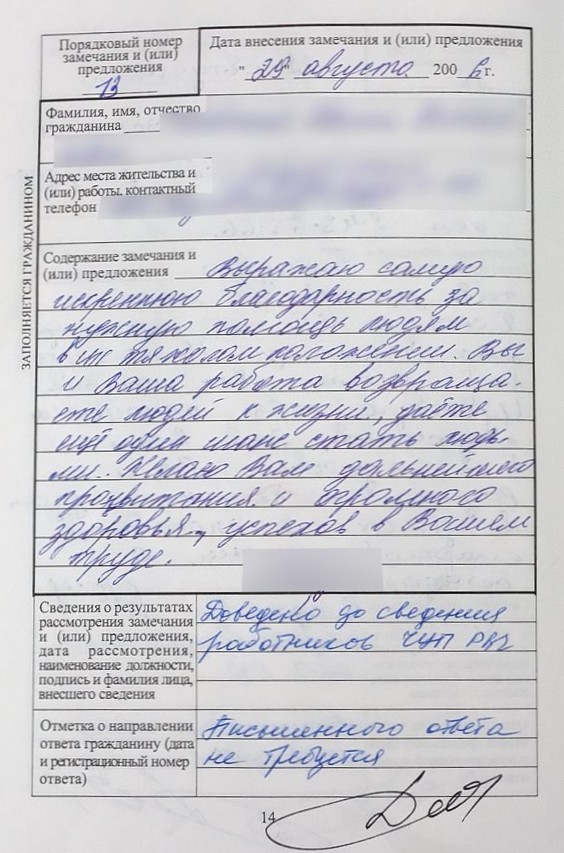 Порядковый номер
замечания и (или)
предложения
13
Дата внесения замечания и (или) предложения
" 29" августа 2006 г.
ЗАПОЛНЯЕТСЯ ГРАЖДАНИНОМ
Фамилия, имя, отчество
гражданина
Адрес места жительства и
(или) работы, контактный
телефон
Содержание замечания и
(или) предложения Выражаю самую
искреннюю благодарность за
нужную помощь людям
в их тяжелом положении. Вы
и Ваша работа возвраща-
ете людей к жизни, даёте
ещё один шанс стать людь-
ми. Желаю Вам дальнейшего
процветания и огромного
здоровья, успехов в Вашем
труде.
Сведения о результатах
рассмотрения замечания
и (или) предложения,
дата рассмотрения,
наименование должности,
подпись и фамилия лица,
внесшего сведения
Доведено до сведения
работников ЧУП
Отметка о направлении
ответа гражданину (дата
и регистрационный номер
ответа)
Письменного ответа
не требуется
14